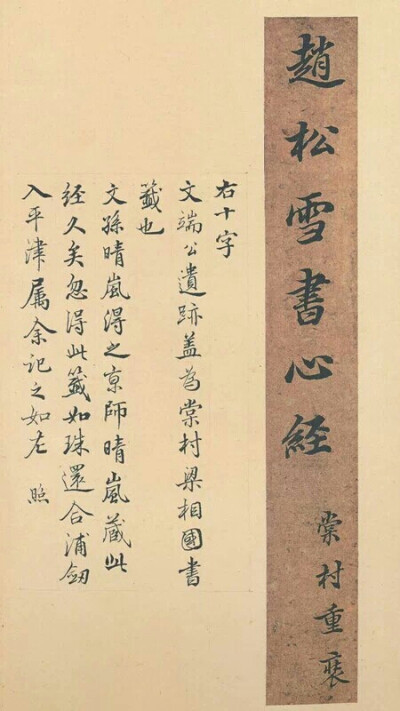 趙松雪書心経
棠村重裝
右十字
文端公遺跡蓋為棠村梁相國書
籤也
文孫晴嵐得之京師晴嵐藏此
経久矣忽得此籤如珠還合浦劒
入平津属余記之如左 照